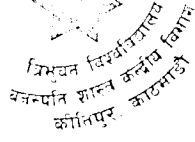 त्रिभुवन विश्वविद्यालय
वनस्पति शास्त्र केन्द्रीय विभाग
कीर्तिपुर, काठमाडौं